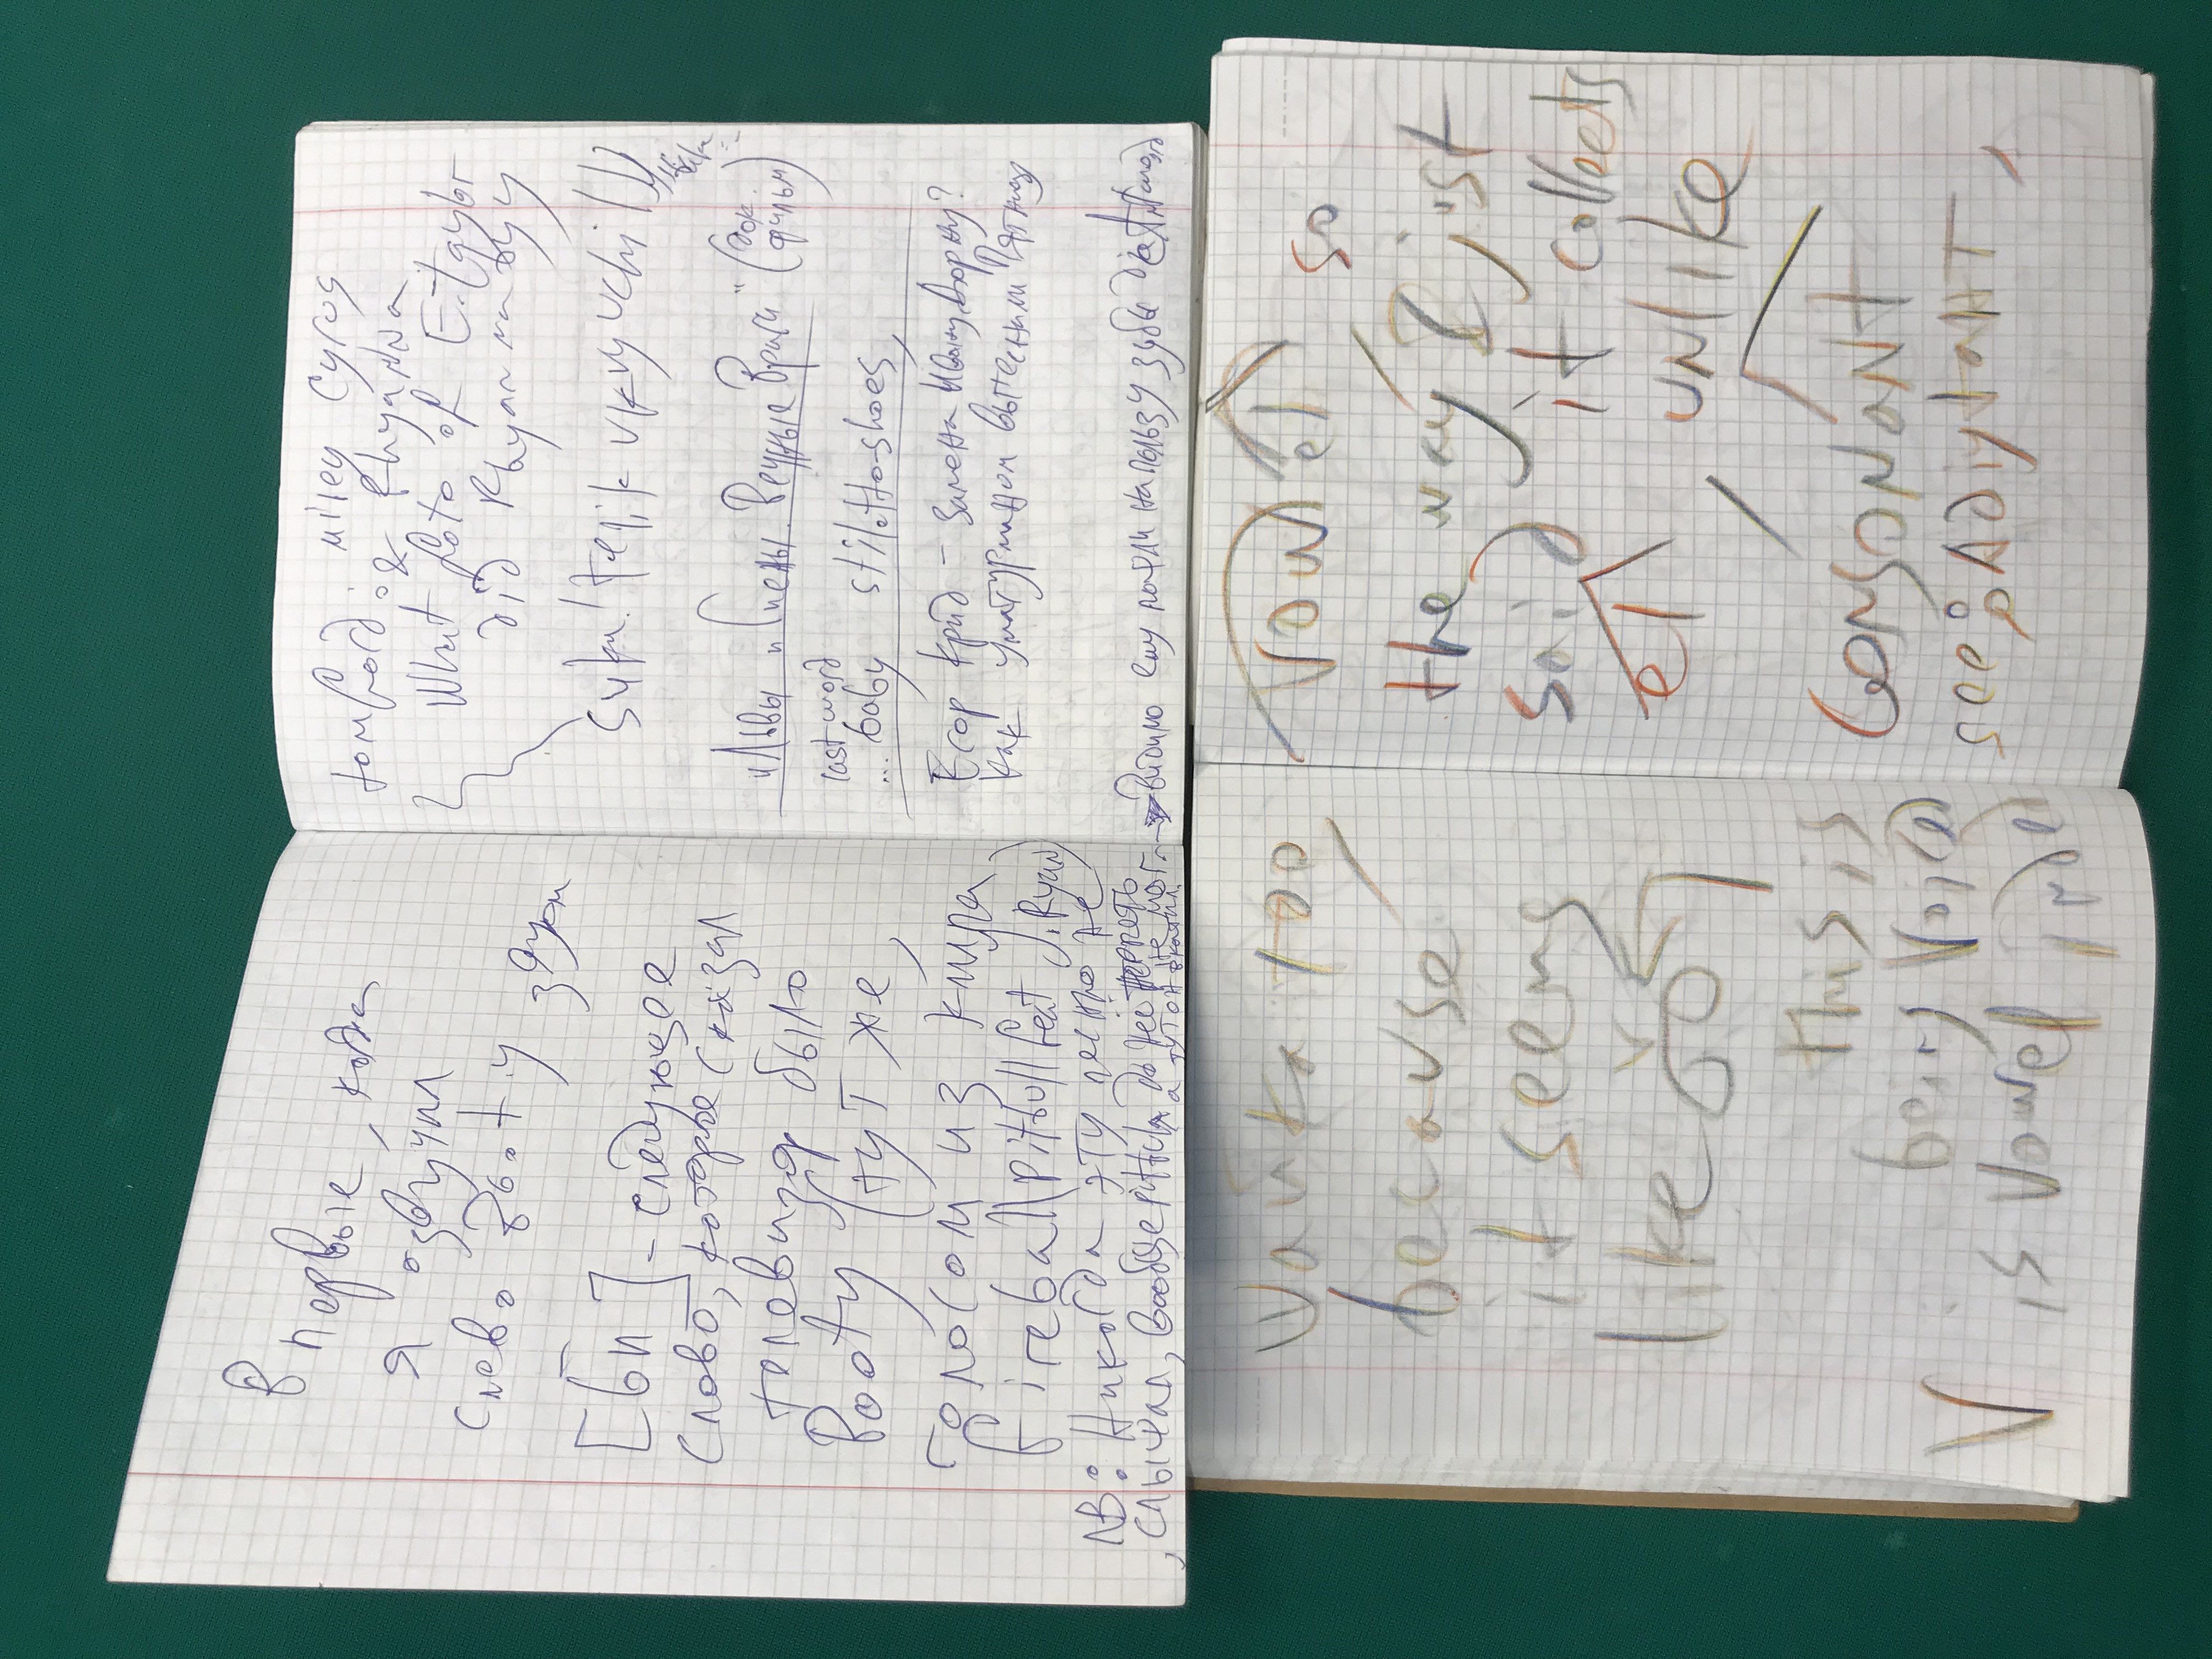 Впервые, когда
я озвучил
слово Booty
[бп] - следующее
слово, которое сказал
телевизор было
Booty (тут же,
голосом из клипа
Fireball Pitbull feat J.Ryan)
NB: Никогда эту песню не
слышал, вообще до неё терпеть
не мог.
а тут он
tomford: miley Cyrus
& Rhyanna
What foto of E.taylor
did Rhyanna
Suka! telik vkvyuchil)))
"Львы и Гиены. Вечные Враги" (док.
фильм)
last word
... baby stiletto-shoes,
Егор Крид - замена Ивану Дорну?
как Уматурманом вытеснили
Видимо ему пошли на пользу зубы
too
because
it seems
like ŏo
this is
being voiced
V is Vowel inde
Vowel el so
the way I just
said it collects
el, unlike
consonant
see: Adiytант,